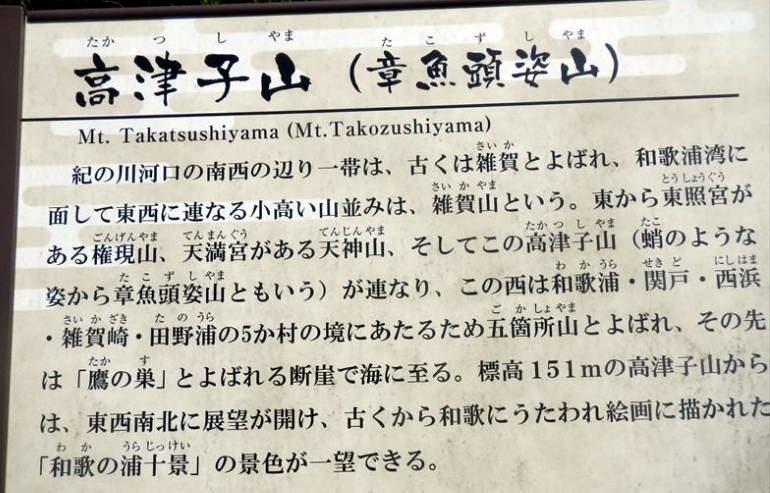 たか つ し やま た こ ず し やま
高津子山（章魚頭姿山）
Mt. Takatsushiyama (Mt.Takozushiyama)
さい か
紀の川河口の南西の辺り一帯は、古くは雑賀とよばれ、和歌浦湾に
さい か やま とうしょうぐう
面して東西に連なる小高い山並みは、雑賀山という。東から東照宮が
ごんげんやま てんまんぐう てんじんやま たか つ し やま たこ
ある権現山、天満宮がある天神山、そしてこの高津子山（蛸のような
た こ ず し やま わ か うら せき ど にしはま
姿から章魚頭姿山ともいう）が連なり、この西は和歌浦・関戸・西浜
さい か ざき た の うら ご か しょ やま
・雑賀崎・田野浦の5か村の境にあたるため五箇所山とよばれ、その先
たか す
は「鷹の巣」とよばれる断崖で海に至る。標高151mの高津子山から
は、東西南北に展望が開け、古くから和歌にうたわれ絵画に描かれた
わ か うら じっけい
「和歌の浦十景」の景色が一望できる。